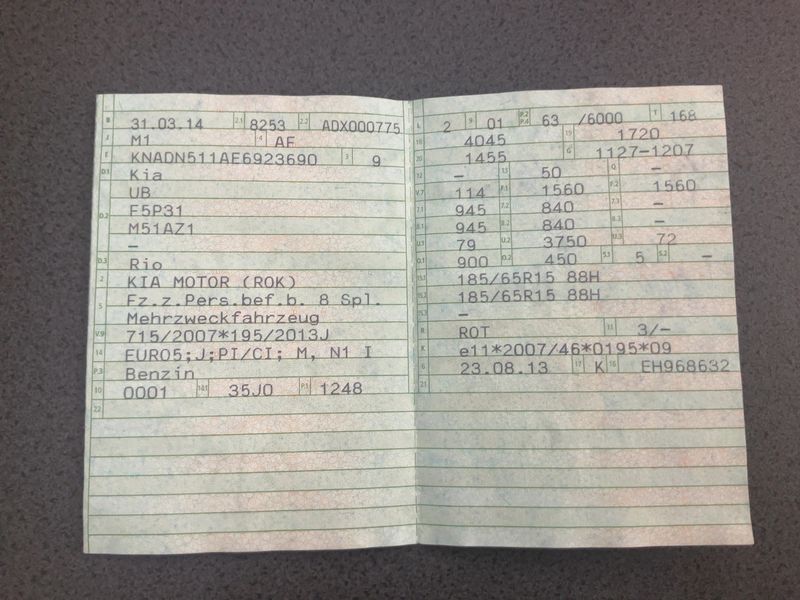 B 31.03.14 2.1 8253 2.2 ADX000775
J M1 4 AF
E KNADN511AE6923690 3 9
D.1 Kia
UB
D.2 F5P31
M51AZ1
–
D.3 Rio
2 KIA MOTOR (ROK)
5 Fz.z.Pers.bef.b. 8 Spl.
Mehrzweckfahrzeug
V.9 715/2007*195/2013J
14 EURO5;J;PI/CI; M, N1 I
P.3 Benzin
10 0001 14.1 35J0 P.1 1248
22
L 2 9 01 P.2 P.4 63 /6000 T 168
18 4045 19 1720
20 1455 G 1127–1207
12 – 13 50 Q –
V.7 114 F.1 1560 F.2 1560
7.1 945 7.2 840 7.3 –
8.1 945 8.2 840 8.3 –
U.1 79 U.2 3750 U.3 72
O.1 900 O.2 450 S.1 5 S.2 –
15.1 185/65R15 88H
15.2 185/65R15 88H
15.3 –
R ROT 11 3/–
K e11*2007/46*0195*09
6 23.08.13 17 K 16 EH968632
21